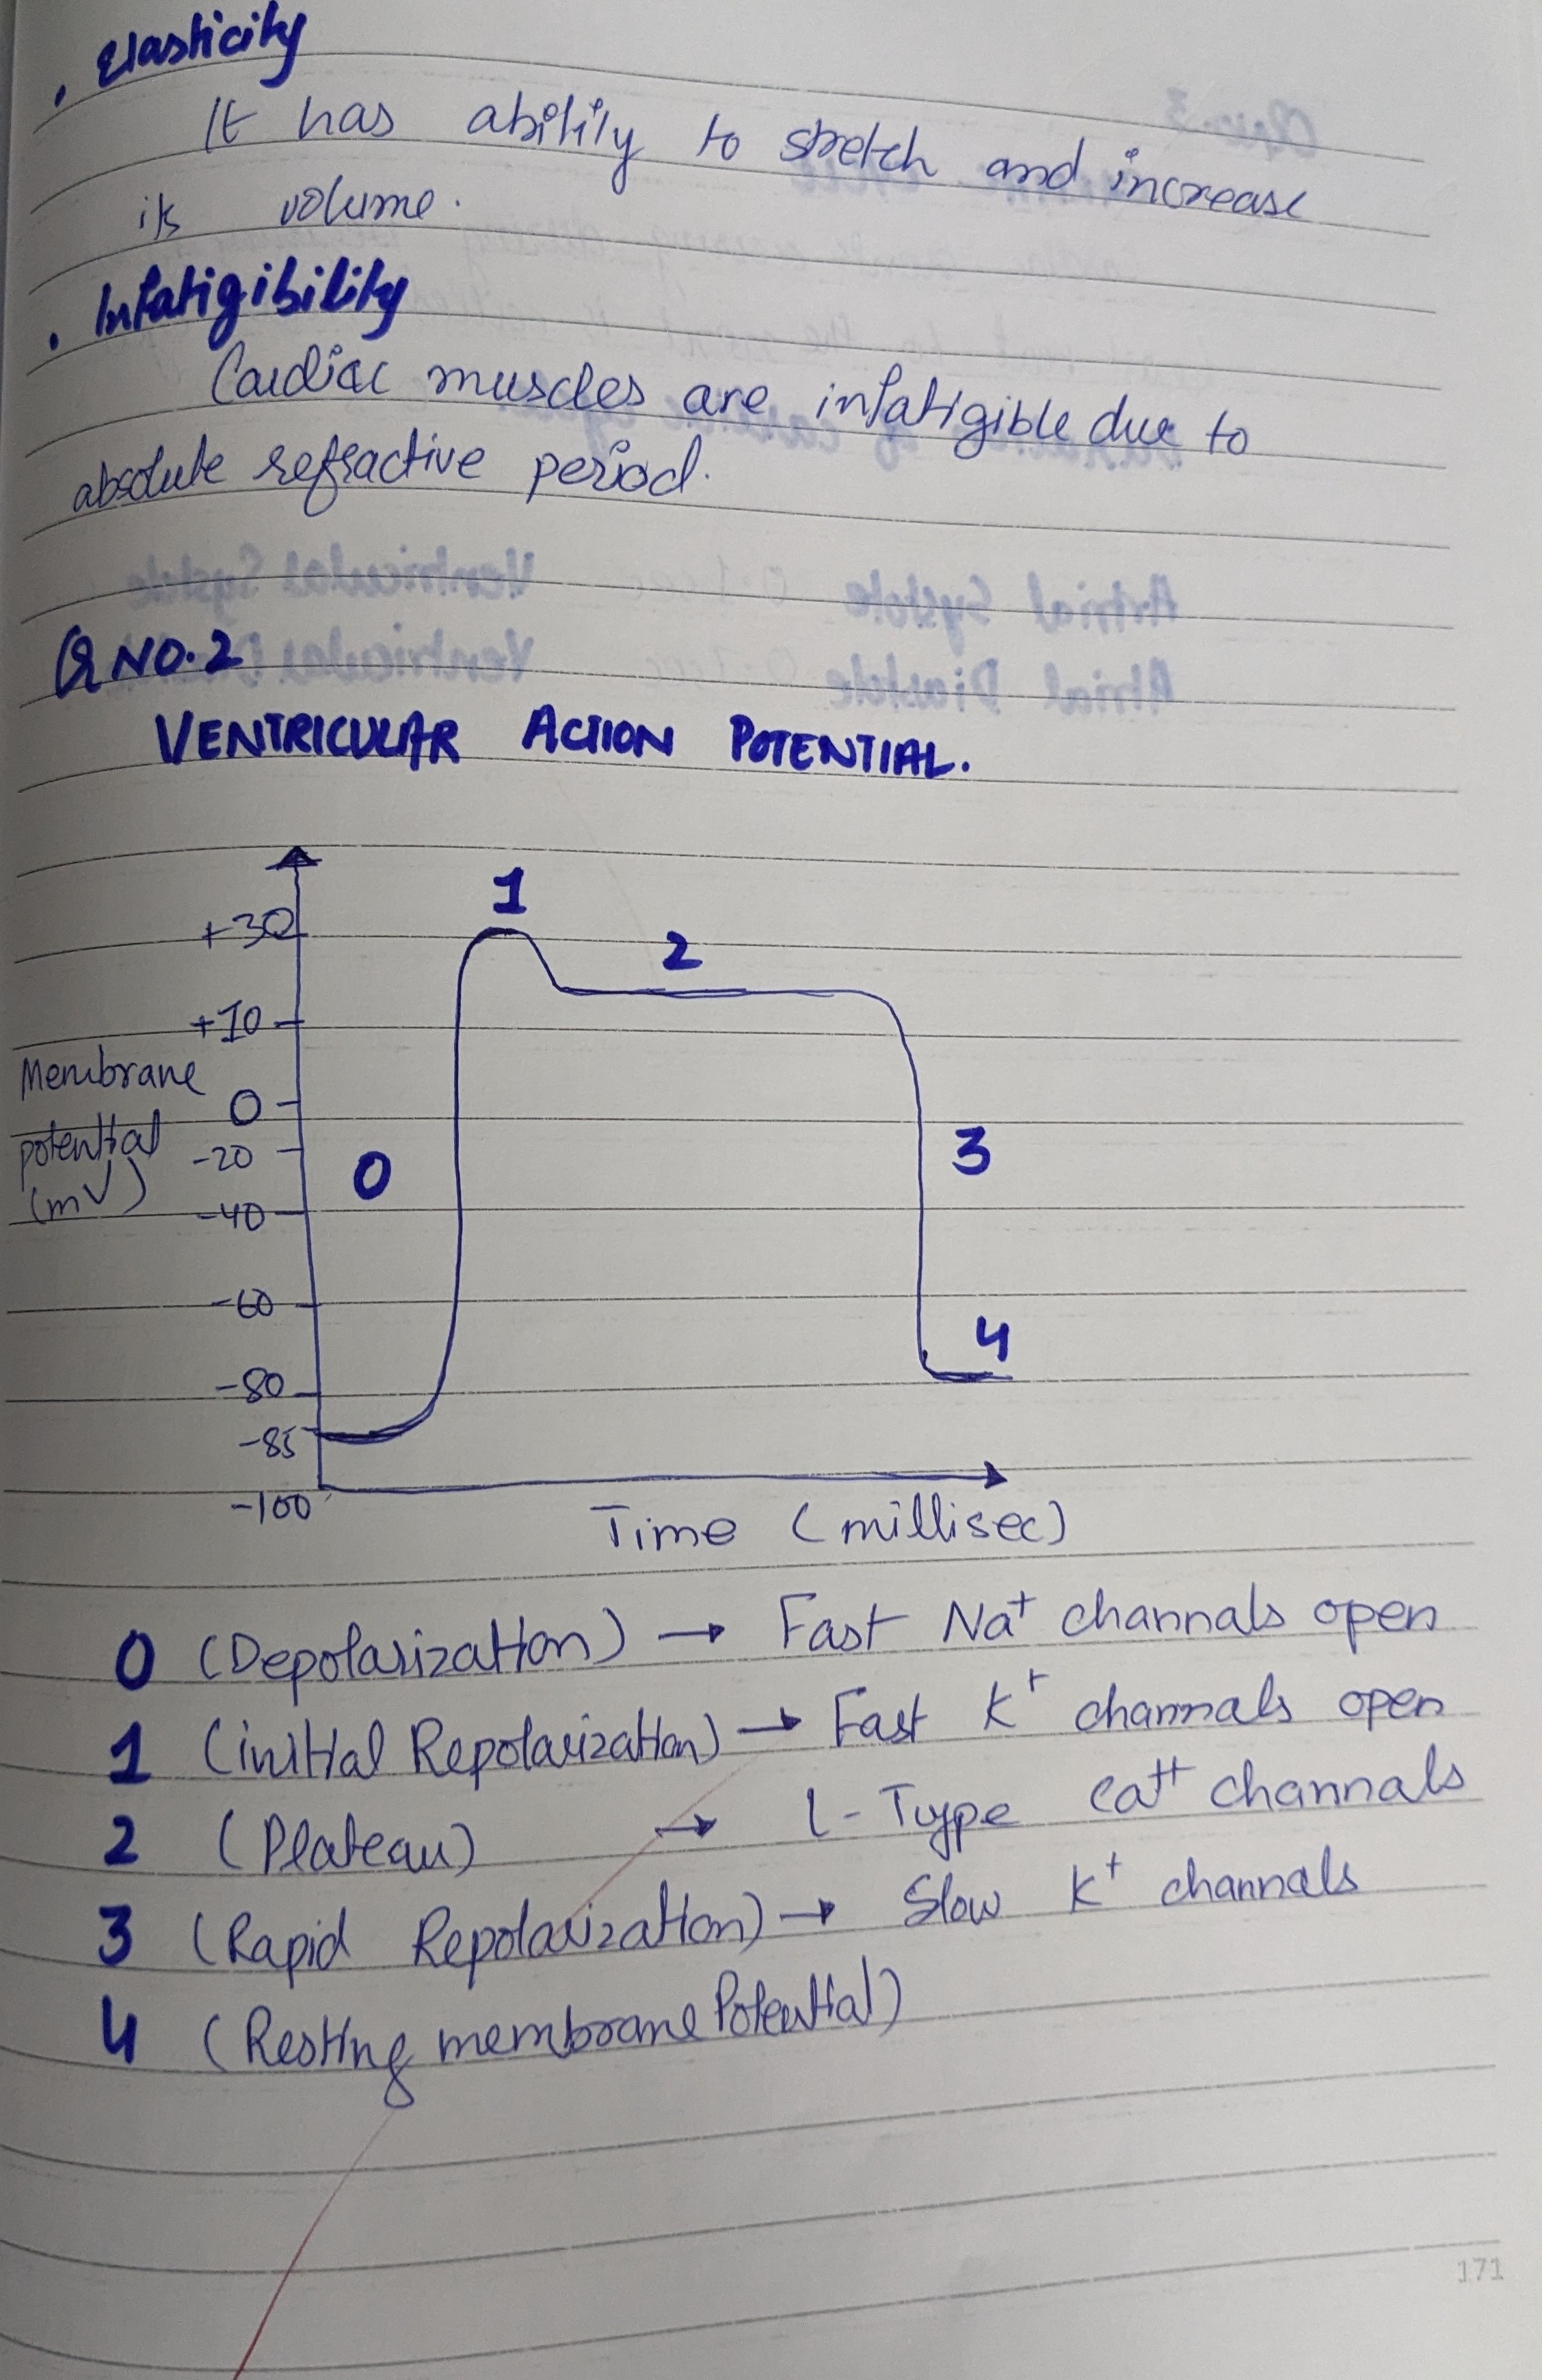 . Elasticity
It has ability to stretch and increase
its volume.
. Infatigibility
Cardiac muscles are infatigible due to
absolute refractive period.
Q NO.2
VENTRICULAR ACTION POTENTIAL.
1
+30
2
+10
Membrane
0
potential
-20
3
0
(mV)
-40
-60
4
-80
-85
-100
Time (millisec)
0 (Depolarization) → Fast Na+ channals open
1 (initial Repolarization) → Fast K+ channals open
2 (Plateau) → L-Type Ca++ channals
3 (Rapid Repolarization) → Slow K+ channals
4 (Resting membrane Potential)
171